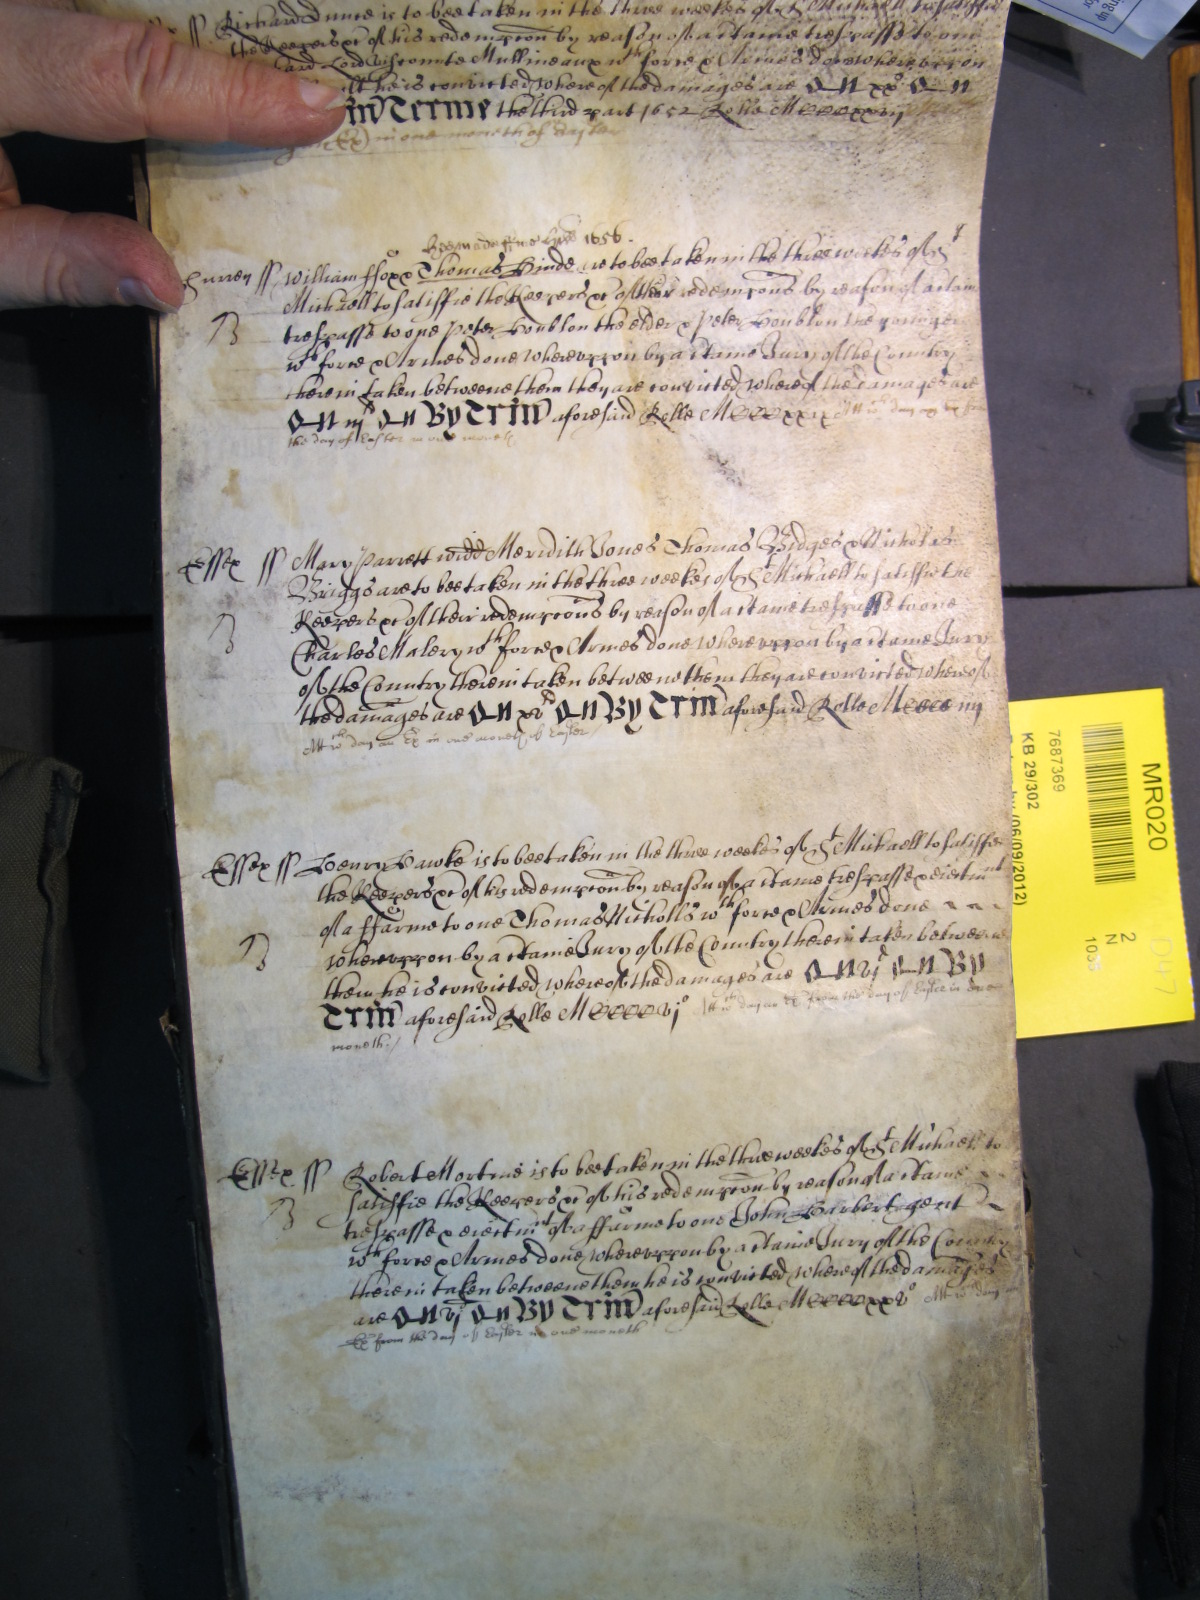 ss Richard is to bee taken in the three weekes of St Michaell to satisfie
the Keepers &c of his redempcon by reason of a ctaine trespasse to one
Lord Viscounte Mullineaux wth force & Armes done whereupon
he is convicted whereof the damages are On xxs On
Terme the third part 1652 Rolle
in one moneth of Easter
1656.
Surrey ss William ffoxx Thomas Hinde are to bee taken in the three weekes of St
Michaell to satisfie the Keepers &c of their redempcons by reason of a ctaine
trespasse to one Peter Houblon the elder & Peter Houblon the younger
wth force & Armes done whereuppon by a ctaine Jury of the Country
therein taken betweene them they are convicted whereof the damages are
On iijd On By Trin aforesaid Rolle MCCCCxxix
the day of Easter in one moneth
Essex ss Mary Parrett widd Meridith Jones Thomas Bridges & Nicholas
Briggs are to bee taken in the three weekes of St Michaell to satisfie the
Keepers &c of their redempcons by reason of a ctaine trespasse to one
Charles Malery wth force & Armes done whereuppon by a ctaine Jury
of the Country therein taken betweene them they are convicted whereof
the damages are On xxd On By Trin aforesaid Rolle MCCCC iiij
Att wch day an Ex in one moneth of Easter
Essex ss Henry Hawke is to bee taken in the three weekes of St Michaell to satisfie
the Keepers &c of his redempcon by reason of a ctaine trespasse & eiectmt
of a ffarme to one Thomas Nicholls wth force & Armes done
whereuppon by a ctaine Jury of the Country therein taken betweene
them he is convicted whereof the damages are On vjd On By
Trin aforesaid Rolle MCCCCvjo Att wch day an Ex from the day of Easter in one
moneth
Essex ss Robert Mortus is to bee taken in the three weekes of St Michaell to
satisfie the Keepers &c of his redempcon by reason of a ctaine
trespasse & eiectmt of a ffarme to one John Harbert gent
wth force & Armes done whereuppon by a ctaine Jury of the Country
therein taken betweene them he is convicted whereof the damages
are On vjd On By Trin aforesaid Rolle MCCCCxxvo Att wch day
Ex from the day of Easter in one moneth
MR020
7687369
KB 29/302
(06/09/2012)
2
N
103
D47